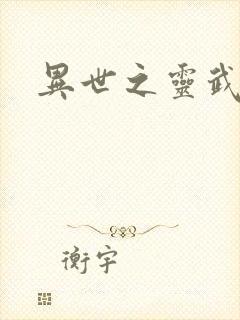 異世之靈武
衡宇